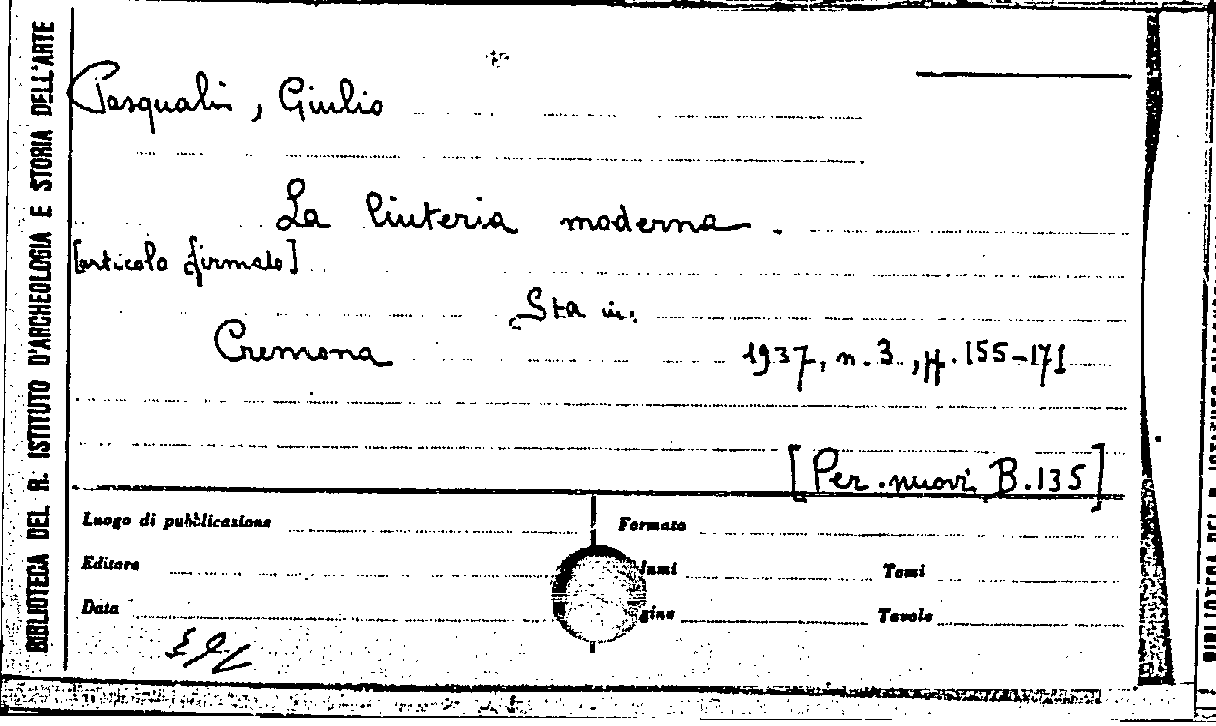 BIBLIOTECA DEL R. ISTITUTO D'ARCHEOLOGIA E STORIA DELL'ARTE
Pasqualin, Giulio
La liuteria moderna.
[articolo firmato]
Sta in:
Cremona 1937, n. 3., pp. 155-171
[Per. nuovi B.135]
Luogo di pubblicazione Formato
Editore lumi Tomi
Data gine Tavole